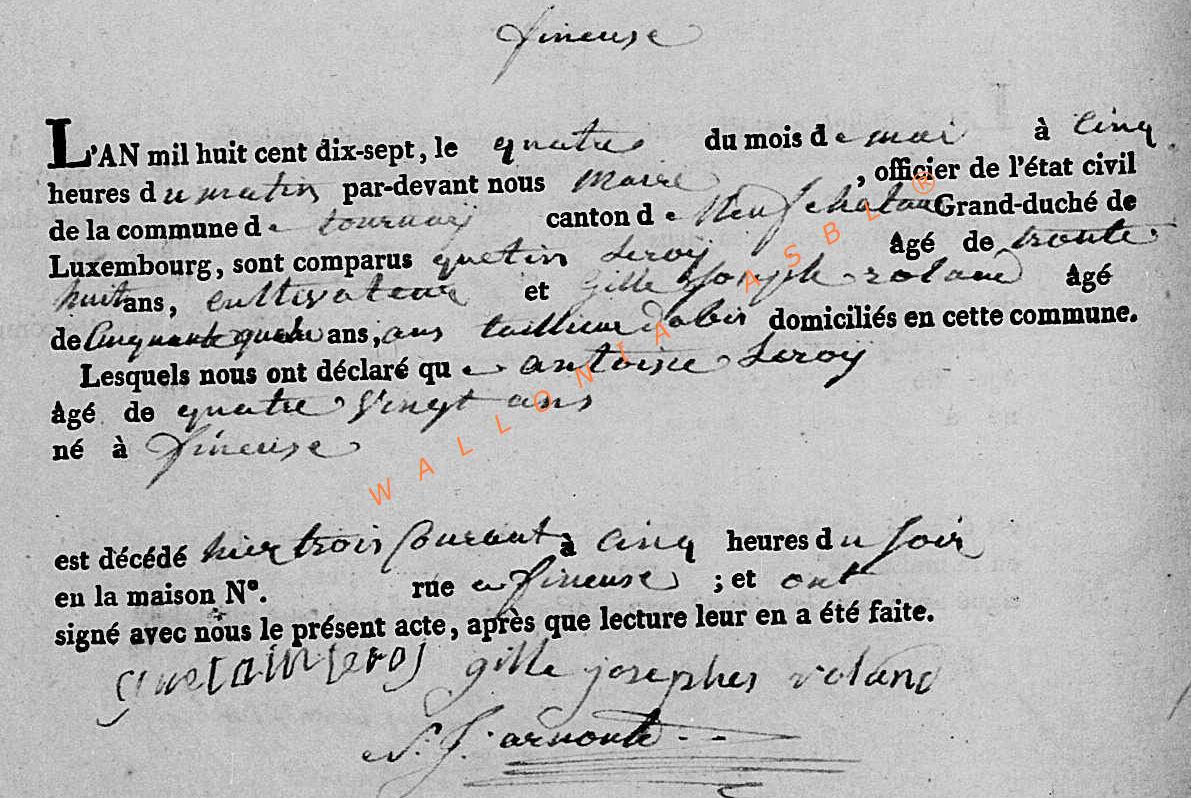 fineuse
L'AN mil huit cent dix-sept, le quatre du mois de mai à cinq
heures du matin par-devant nous maire, officier de l'état civil
de la commune de tournaÿ canton de Neufchatau Grand-duché de
Luxembourg, sont comparus quetin Leroÿ âgé de trente
huit ans, cultivateur et gille Joseph roland âgé
de Cinquante quatre ans, ans taillieur dabis domiciliés en cette commune.
Lesquels nous ont déclaré que antoine Leroÿ
âgé de quatre Vingt ans
né à fineuse
est décédé hier trois Courant à cinq heures du soir
en la maison N°. rue a fineuse ; et ont
signé avec nous le présent acte, après que lecture leur en a été faite.
leroj gille josephes roland
arnould
WALLONIA ASBL ®